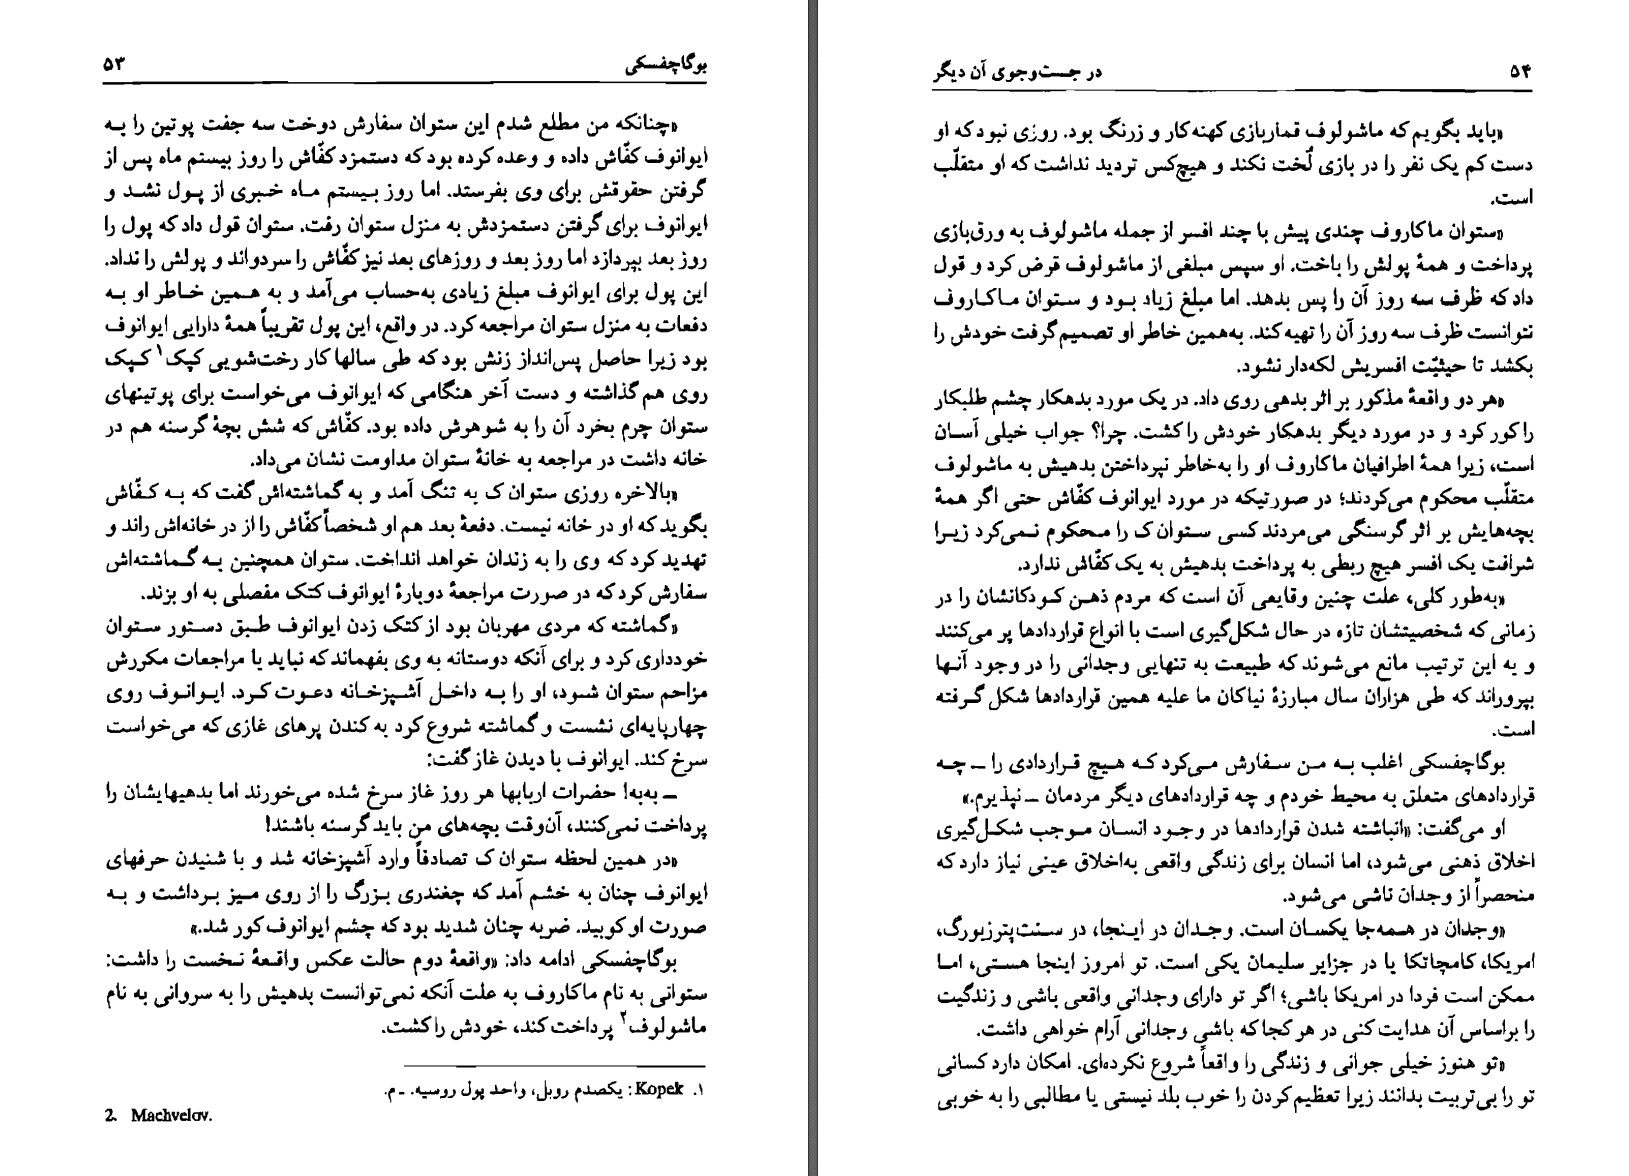 بوگاچفسکی ۵۳
«چنانکه من مطلع شدم این ستوان سفارش دوخت سه جفت پوتین را به
ایوانوف کفّاش داده و وعده کرده بود که دستمزد کفّاش را روز بیستم ماه پس از
گرفتن حقوقش برای وی بفرستد. اما روز بیستم ماه خبری از پول نشد و
ایوانوف برای گرفتن دستمزدش به منزل ستوان رفت. ستوان قول داد که پول را
روز بعد بپردازد اما روز بعد و روزهای بعد نیز کفّاش را سردواند و پولش را نداد.
این پول برای ایوانوف مبلغ زیادی به‌حساب می‌آمد و به همین خاطر او به
دفعات به منزل ستوان مراجعه کرد. در واقع، این پول تقریباً همهٔ دارایی ایوانوف
بود زیرا حاصل پس‌انداز زنش بود که طی سالها کار رخت‌شویی کپک۱ کپک
روی هم گذاشته و دست آخر هنگامی که ایوانوف می‌خواست برای پوتینهای
ستوان چرم بخرد آن را به شوهرش داده بود. کفّاش که شش بچهٔ گرسنه هم در
خانه داشت در مراجعه به خانهٔ ستوان مداومت نشان می‌داد.
«بالاخره روزی ستوان ک به تنگ آمد و به گماشته‌اش گفت که به کفّاش
بگوید که او در خانه نیست. دفعهٔ بعد هم او شخصاً کفّاش را از در خانه‌اش راند و
تهدید کرد که وی را به زندان خواهد انداخت. ستوان همچنین به گماشته‌اش
سفارش کرد که در صورت مراجعهٔ دوبارهٔ ایوانوف کتک مفصلی به او بزند.
«گماشته که مردی مهربان بود از کتک زدن ایوانوف طبق دستور ستوان
خودداری کرد و برای آنکه دوستانه به وی بفهماند که نباید با مراجعات مکررش
مزاحم ستوان شود، او را به داخل آشپزخانه دعوت کرد. ایوانوف روی
چهارپایه‌ای نشست و گماشته شروع کرد به کندن پرهای غازی که می‌خواست
سرخ کند. ایوانوف با دیدن غاز گفت:
ــ به‌به! حضرات اربابها هر روز غاز سرخ شده می‌خورند اما بدهیهایشان را
پرداخت نمی‌کنند، آن‌وقت بچه‌های من باید گرسنه باشند!
«در همین لحظه ستوان ک تصادفاً وارد آشپزخانه شد و با شنیدن حرفهای
ایوانوف چنان به خشم آمد که چغندری بزرگ را از روی میز برداشت و به
صورت او کوبید. ضربه چنان شدید بود که چشم ایوانوف کور شد.»
بوگاچفسکی ادامه داد: «واقعهٔ دوم حالت عکس واقعهٔ نخست را داشت:
ستوانی به نام ماکاروف به علت آنکه نمی‌توانست بدهیش را به سروانی به نام
ماشولوف۲ پرداخت کند، خودش را کشت.
۱. Kopek: یکصدم روبل، واحد پول روسیه. ـ م.
2. Machvelov.
۵۴ در جست‌وجوی آن دیگر
«باید بگویم که ماشولوف قماربازی کهنه‌کار و زرنگ بود. روزی نبود که او
دست کم یک نفر را در بازی لُخت نکند و هیچ‌کس تردید نداشت که او متقلّب
است.
«ستوان ماکاروف چندی پیش با چند افسر از جمله ماشولوف به ورق‌بازی
پرداخت و همهٔ پولش را باخت. او سپس مبلغی از ماشولوف قرض کرد و قول
داد که ظرف سه روز آن را پس بدهد. اما مبلغ زیاد بود و ستوان ماکاروف
نتوانست ظرف سه روز آن را تهیه کند. به‌همین خاطر او تصمیم گرفت خودش را
بکشد تا حیثیّت افسریش لکه‌دار نشود.
«هر دو واقعهٔ مذکور بر اثر بدهی روی داد. در یک مورد بدهکار چشم طلبکار
را کور کرد و در مورد دیگر بدهکار خودش را کشت. چرا؟ جواب خیلی آسان
است، زیرا همهٔ اطرافیان ماکاروف او را به‌خاطر نپرداختن بدهیش به ماشولوف
متقلّب محکوم می‌کردند؛ در صورتیکه در مورد ایوانوف کفّاش حتی اگر همهٔ
بچه‌هایش بر اثر گرسنگی می‌مردند کسی ستوان ک را محکوم نمی‌کرد زیرا
شرافت یک افسر هیچ ربطی به پرداخت بدهیش به یک کفّاش ندارد.
«به‌طور کلی، علت چنین وقایعی آن است که مردم ذهن کودکانشان را در
زمانی که شخصیتشان تازه در حال شکل‌گیری است با انواع قراردادها پر می‌کنند
و به این ترتیب مانع می‌شوند که طبیعت به تنهایی وجدانی را در وجود آنها
بپروراند که طی هزاران سال مبارزهٔ نیاکان ما علیه همین قراردادها شکل گرفته
است.
بوگاچفسکی اغلب به من سفارش می‌کرد که هیچ قراردادی را ــ چه
قراردادهای متعلق به محیط خودم و چه قراردادهای دیگر مردمان ــ نپذیرم.»
او می‌گفت: «انباشته شدن قراردادها در وجود انسان موجب شکل‌گیری
اخلاق ذهنی می‌شود، اما انسان برای زندگی واقعی به‌اخلاق عینی نیاز دارد که
منحصراً از وجدان ناشی می‌شود.
«وجدان در همه‌جا یکسان است. وجدان در اینجا، در سنت‌پترزبورگ،
امریکا، کامچاتکا یا در جزایر سلیمان یکی است. تو امروز اینجا هستی، اما
ممکن است فردا در امریکا باشی؛ اگر تو دارای وجدانی واقعی باشی و زندگیت
را براساس آن هدایت کنی در هر کجا که باشی وجدانی آرام خواهی داشت.
«تو هنوز خیلی جوانی و زندگی را واقعاً شروع نکرده‌ای. امکان دارد کسانی
تو را بی‌تربیت بدانند زیرا تعظیم کردن را خوب بلد نیستی یا مطالبی را به خوبی